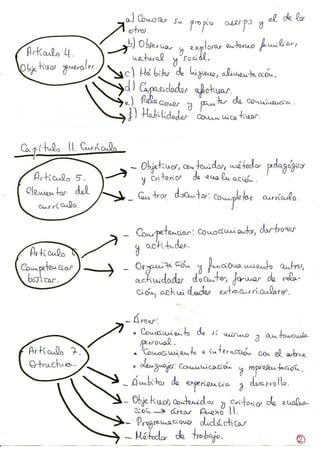 Artículo 4.
Objetivos generales.
a) Conocer su propio cuerpo y el de los
otros.
b) Observar y explorar entorno familiar,
natural y social.
c) Hábitos de higiene, alimentación.
d) Capacidades afectivas.
e) Relacionar y pautas de convivencia.
f) Habilidades comunicativas.
Capítulo II. Currículo
Artículo 5.
Elementos del
currículo.
- Objetivos, contenidos, método pedagógico
y criterios de evaluación.
- Centros docentes: completar currículo.
Artículo 6
Competencias
básicas.
- Competencias: conocimientos, destrezas
y actitudes.
- Organización y funcionamiento centros,
actividades docentes, formas de rela-
ción, actividades extracurriculares.
Artículo 7.
Estructura.
- Áreas:
• Conocimiento de sí mismo y autonomía
personal.
• Conocimiento e interacción con el entorno
• Lenguajes: comunicación y representación.
- Ámbitos de experiencia y desarrollo.
- Objetivos, contenidos y criterios de evalua-
ción → áreas Anexo II.
- Programaciones didácticas
- Métodos de trabajo.
2